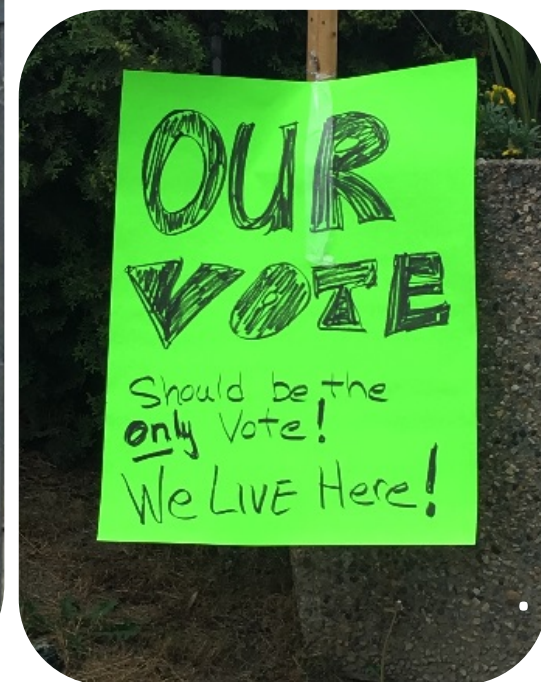 OUR
VOTE
Should be the
only Vote!
We LIVE Here!